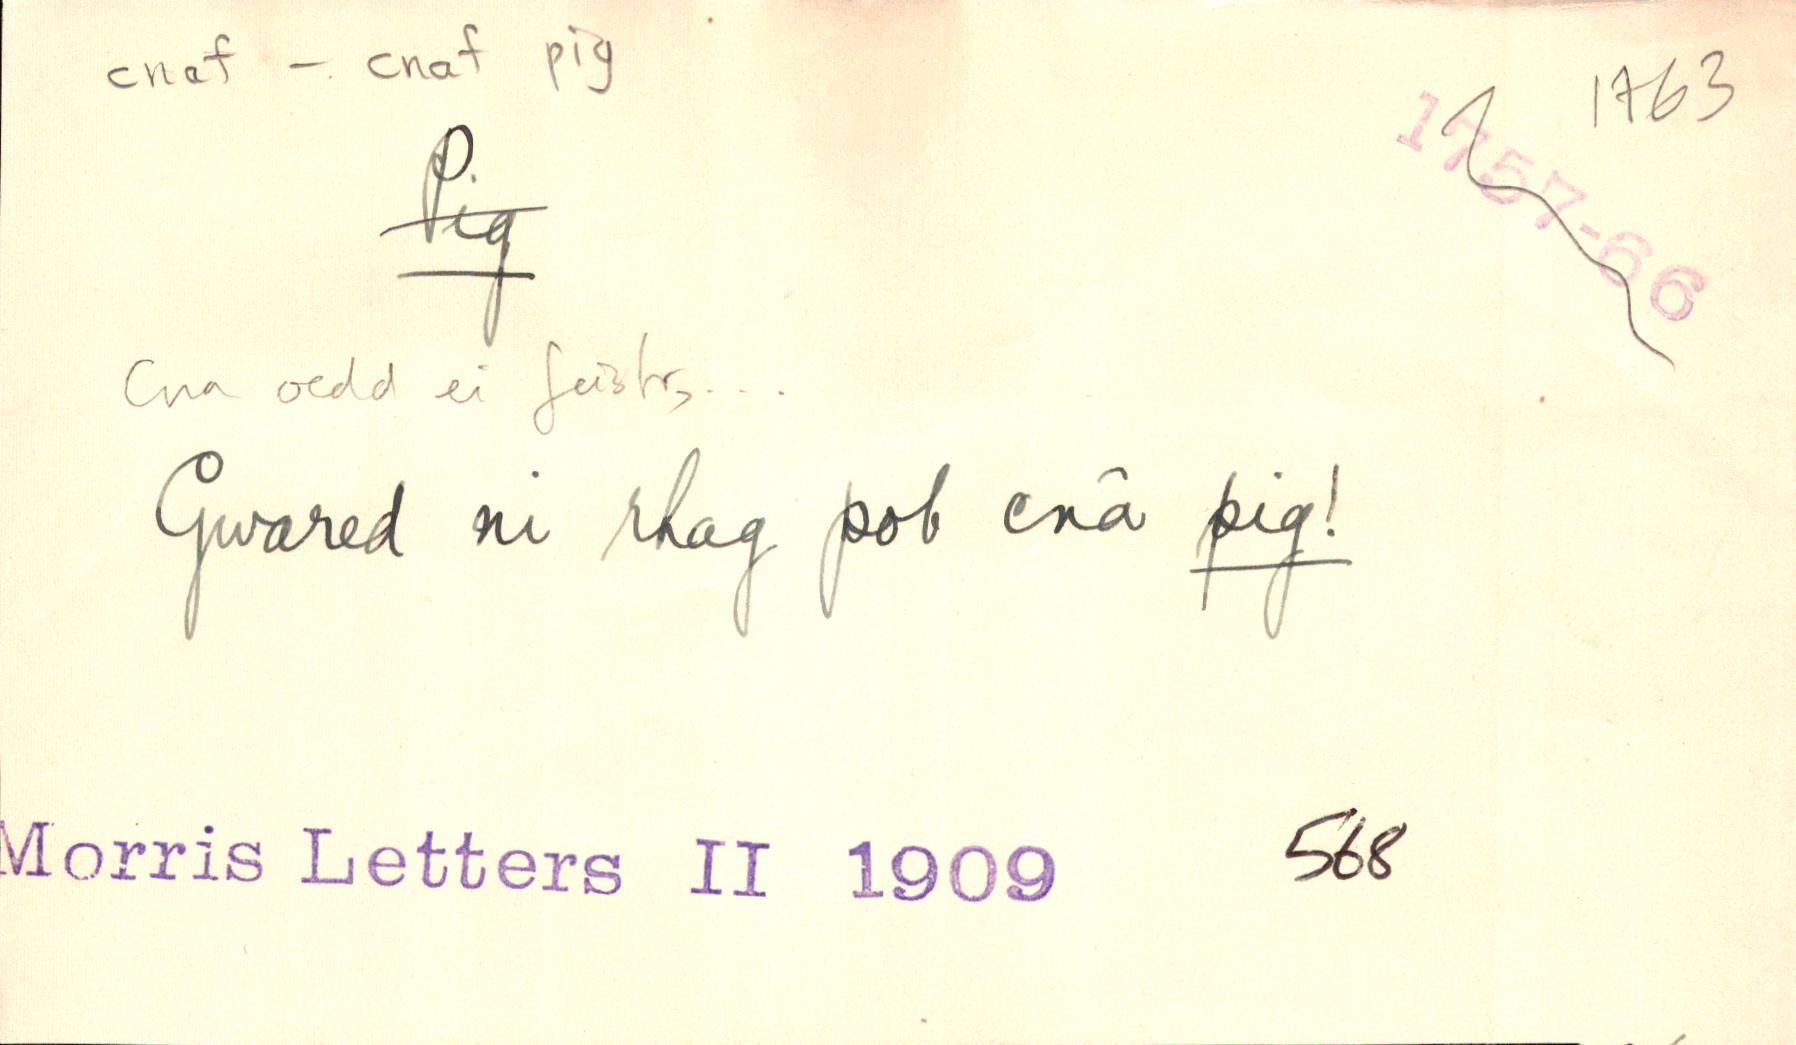 cnaf – cnaf pig
1763
1757-66
Pig
Cna oedd ei feistr, ...
Gwared ni rhag pob cnâ pig!
Morris Letters II 1909 568